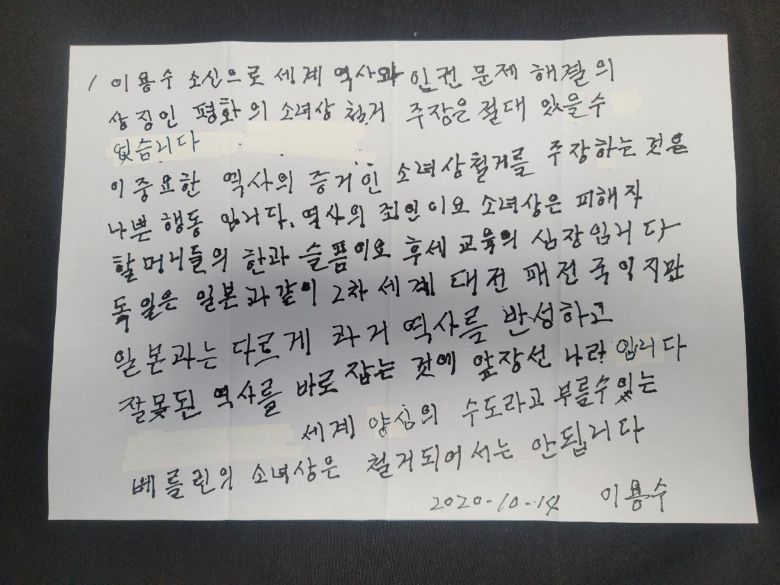 / 이용수 소신으로 세계 역사와 인권 문제 해결의
상징인 평화의 소녀상 철거 주장은 절대 있을수
없습니다
이 중요한 역사의 증거인 소녀상철거를 주장하는 것은
나쁜 행동 입니다. 역사의 죄인이요 소녀상은 피해자
할머니들의 한과 슬픔이요 후세 교육의 심장입니다
독일은 일본과같이 2차 세계 대전 패전국이지만
일본과는 다르게 과거 역사를 반성하고
잘못된 역사를 바로 잡는 것에 앞장선 나라 입니다
세계 양심의 수도라고 부를수있는
베를린의 소녀상은 철거되어서는 안됩니다
2020-10-14 이용수